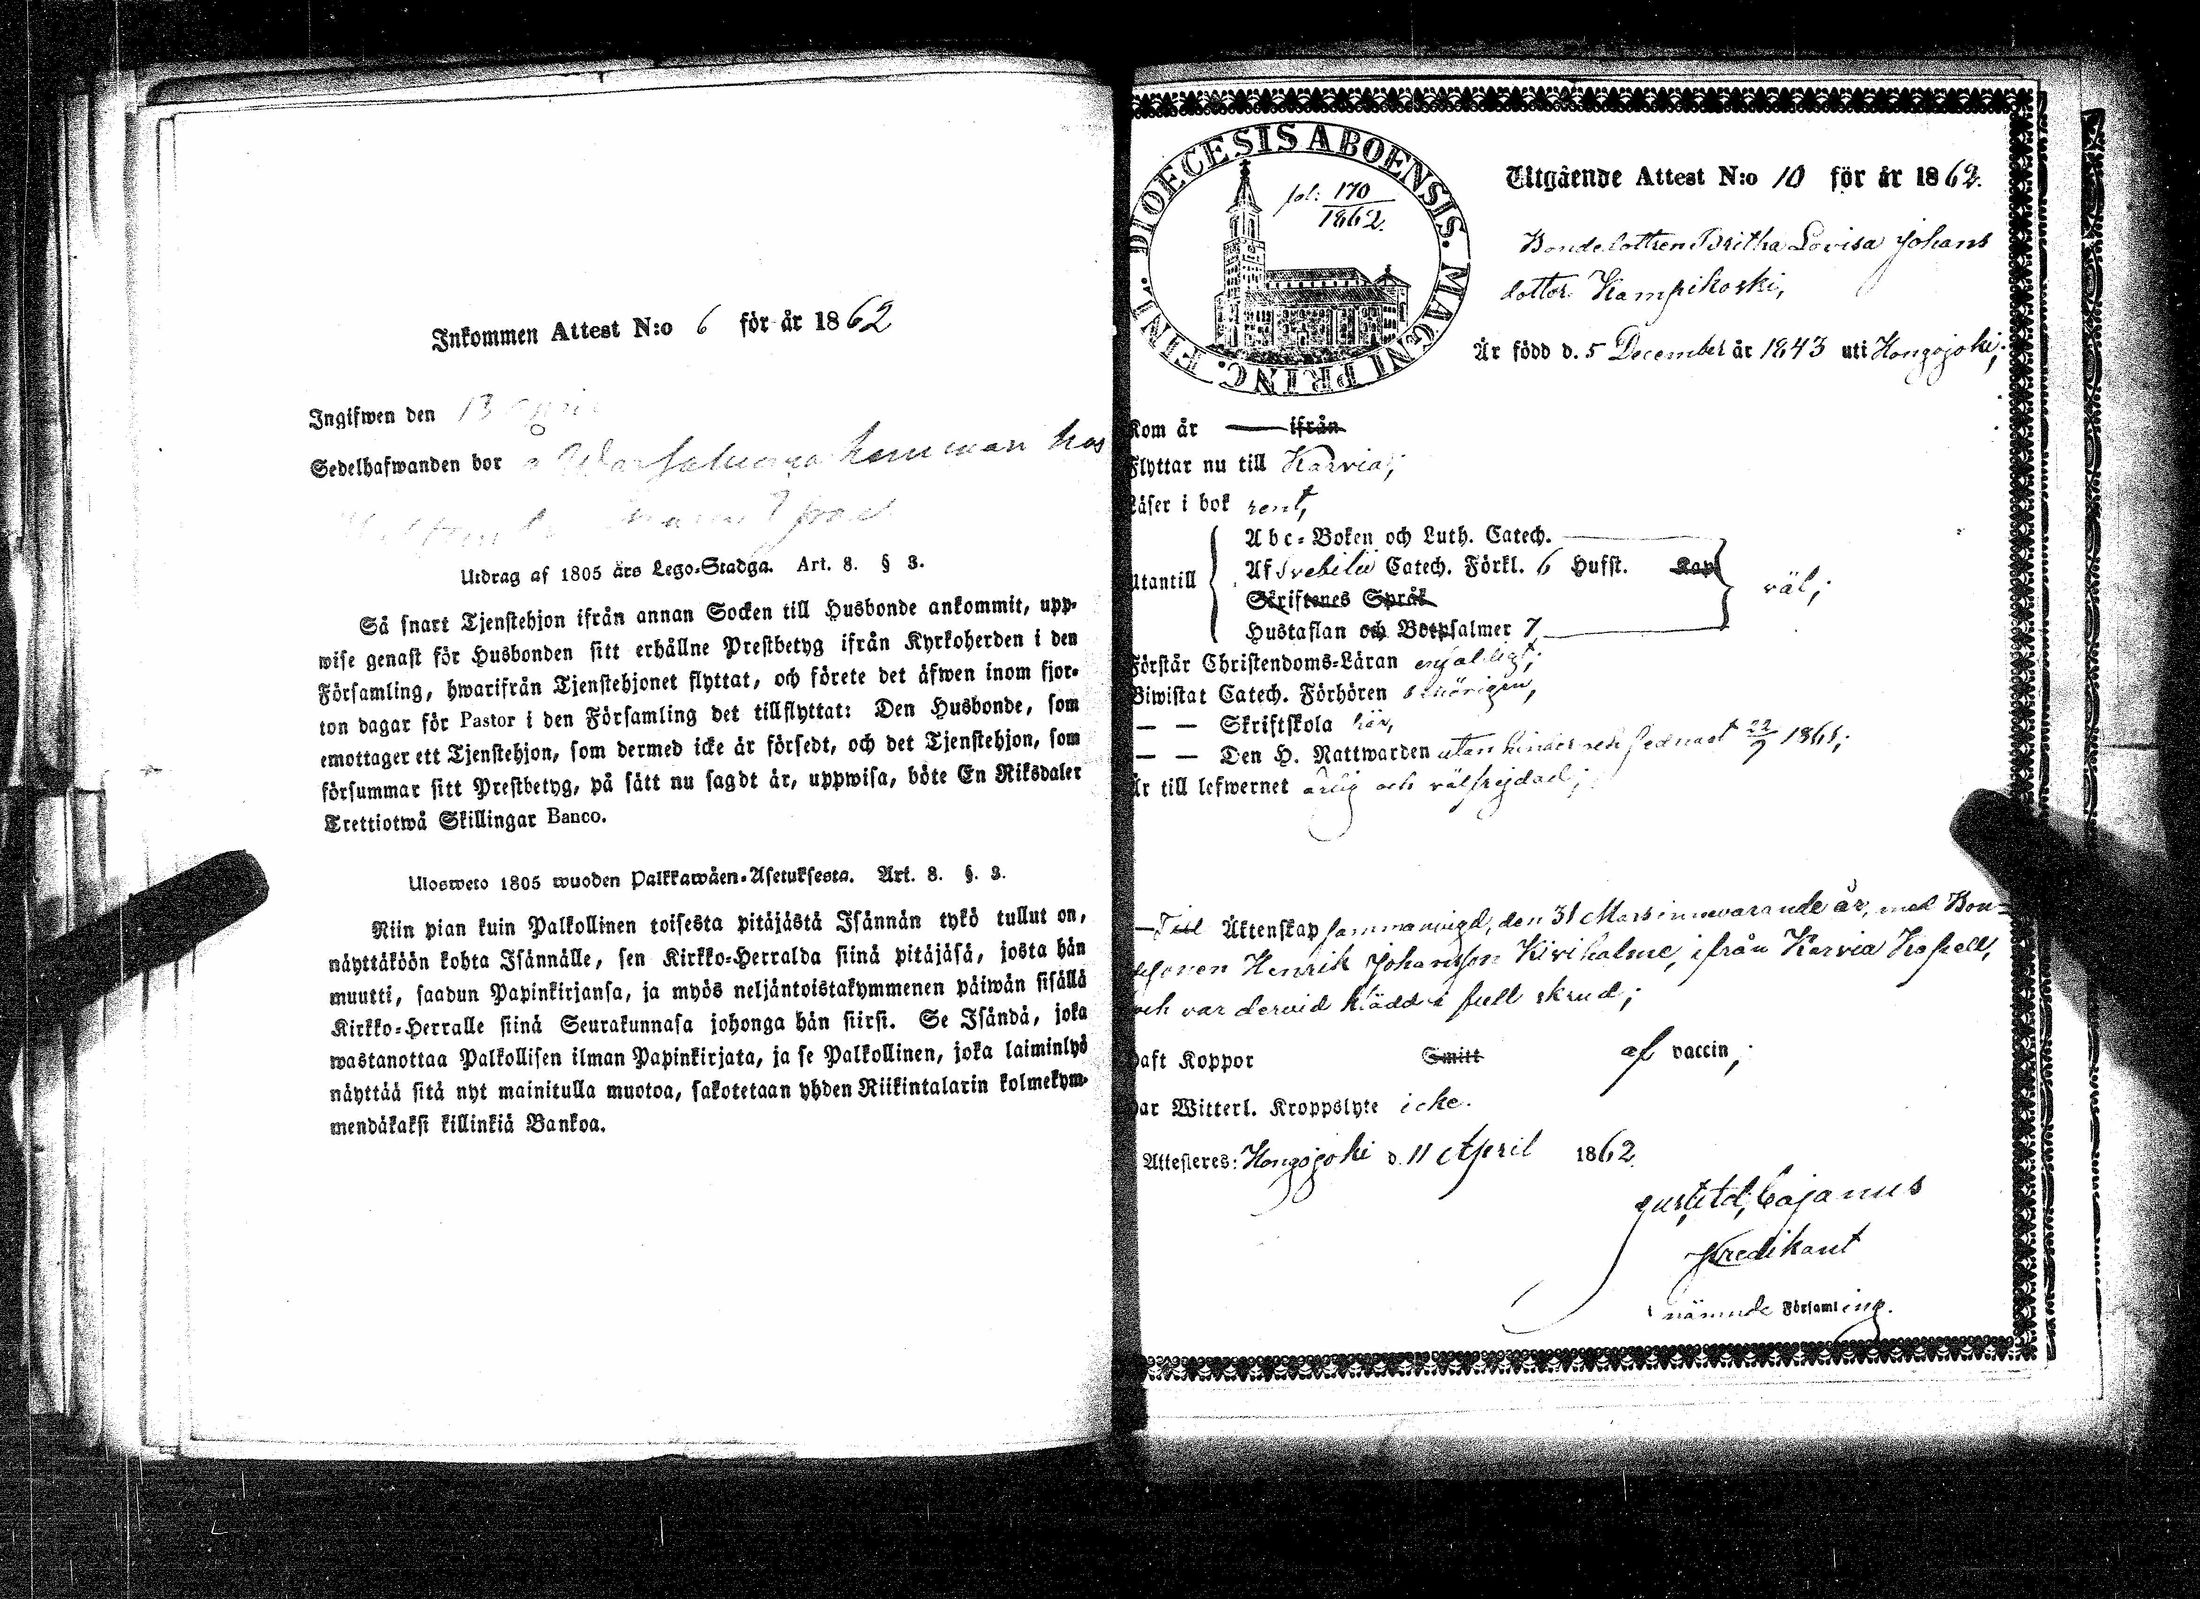 Inkommen Attest N:o 6 för år 1862
Ingifwen den 13 April
Sedelhafwanden bor å hemman hos
Utdrag af 1805 års Lego-Stadga. Art. 8. § 3.
Så snart Tjenstehjon ifrån annan Socken till Husbonde ankommit, upp-
wise genast för Husbonden sitt erhållne Prestbetyg ifrån Kyrkoherden i den
Församling, hwarifrån Tjenstehjonet flyttat, och förete det äfwen inom fjor-
ton dagar för Pastor i den Församling det tillflyttat: Den Husbonde, som
emottager ett Tjenstehjon, som dermed icke är försedt, och det Tjenstehjon, som
försummar sitt Prestbetyg, på sätt nu sagdt är, uppwisa, böte En Riksdaler
Trettiotwå Skillingar Banco.
Ulosweto 1805 wuoden Palkkawäen-Asetuksesta. Art. 8. §. 3.
Niin pian kuin Palkollinen toisesta pitäjästä Isännän tykö tullut on,
näyttäköön kohta Isännälle, sen Kirkko-Herralda siinä pitäjäsä, josta hän
muutti, saadun Papinkirjansa, ja myös neljäntoistakymmenen päiwän sisällä
Kirkko-Herralle siinä Seurakunnasa johonga hän siirsi. Se Isändä, joka
wastanottaa Palkollisen ilman Papinkirjata, ja se Palkollinen, joka laiminlyö
näyttää sitä nyt mainitulla muotoa, sakotetaan yhden Riikintalarin kolmekym-
mendäkaksi killinkiä Bankoa.
DIOECESIS ABOENSIS. MAGNI PRINC. FINL.
fol: 170
1862.
Utgående Attest N:o 10 för år 1862.
Bondedottren Britha Lovisa Johans
dotter Kampikoski,
Är född d. 5 December år 1843 uti Hongojoki;
Kom år — ifrån
Flyttar nu till Karvia;
Läser i bok rent,
Utantill
Abc-Boken och Luth. Catech.
Af Svebilii Catech. Förkl. 6 Hufst. Kap
Skriftenes Språk
Hustaflan och Botpsalmer 7
väl;
Förstår Christendoms-Läran enfaldigt;
Biwistat Catech. Förhören behörigen,
— — Skriftskola här,
— — Den H. Nattwarden utan hinder och sednast 22/9 1861;
Är till lefwernet ärlig och välfrejdad;
— Till Äktenskap sammanvigd, den 31 Mars innevarande år, med Bon-
desonen Henrik Johansson Kiviholme, ifrån Karvia Kapell,
och var dervid klädd i full skrud;
Haft Koppor Smitt af vaccin;
Har Witterl. Kroppslyte icke.
Attesteres: Hongojoki d. 11 April 1862.
Cajanus
Predikant
nämnde Församling.